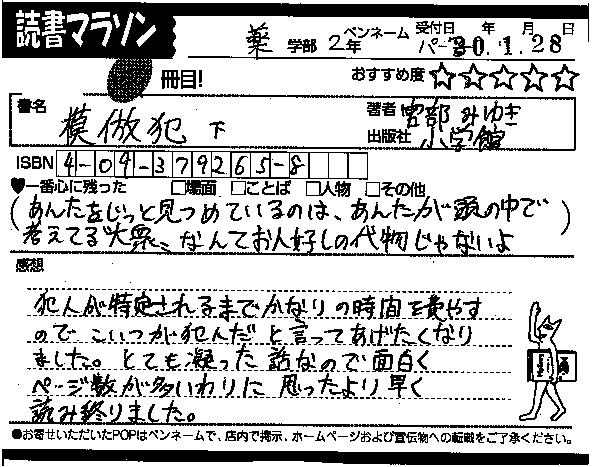 読書マラソン
冊目!
薬 学部 2年
ペンネーム パープ
受付日 年 月 日
20.1.28
おすすめ度 ☆☆☆☆☆
書名
模倣犯 下
著者 宮部みゆき
出版社 小学館
ISBN 4-09-379265-8
♥一番心に残った □場面 □ことば □人物 □その他
(あんたをじっと見つめているのは、あんたが頭の中で
考えてる"大衆"なんてお人好しの代物じゃないよ)
感想
犯人が特定されるまでかなりの時間を費やす
のでこいつが犯人だと言ってあげたくなり
ました。とても凝った話なので面白く
ページ数が多いわりに思ったより早く
読み終りました。
●お寄せいただいたPOPはペンネームで、店内で掲示、ホームページおよび宣伝物への転載をご了承ください。